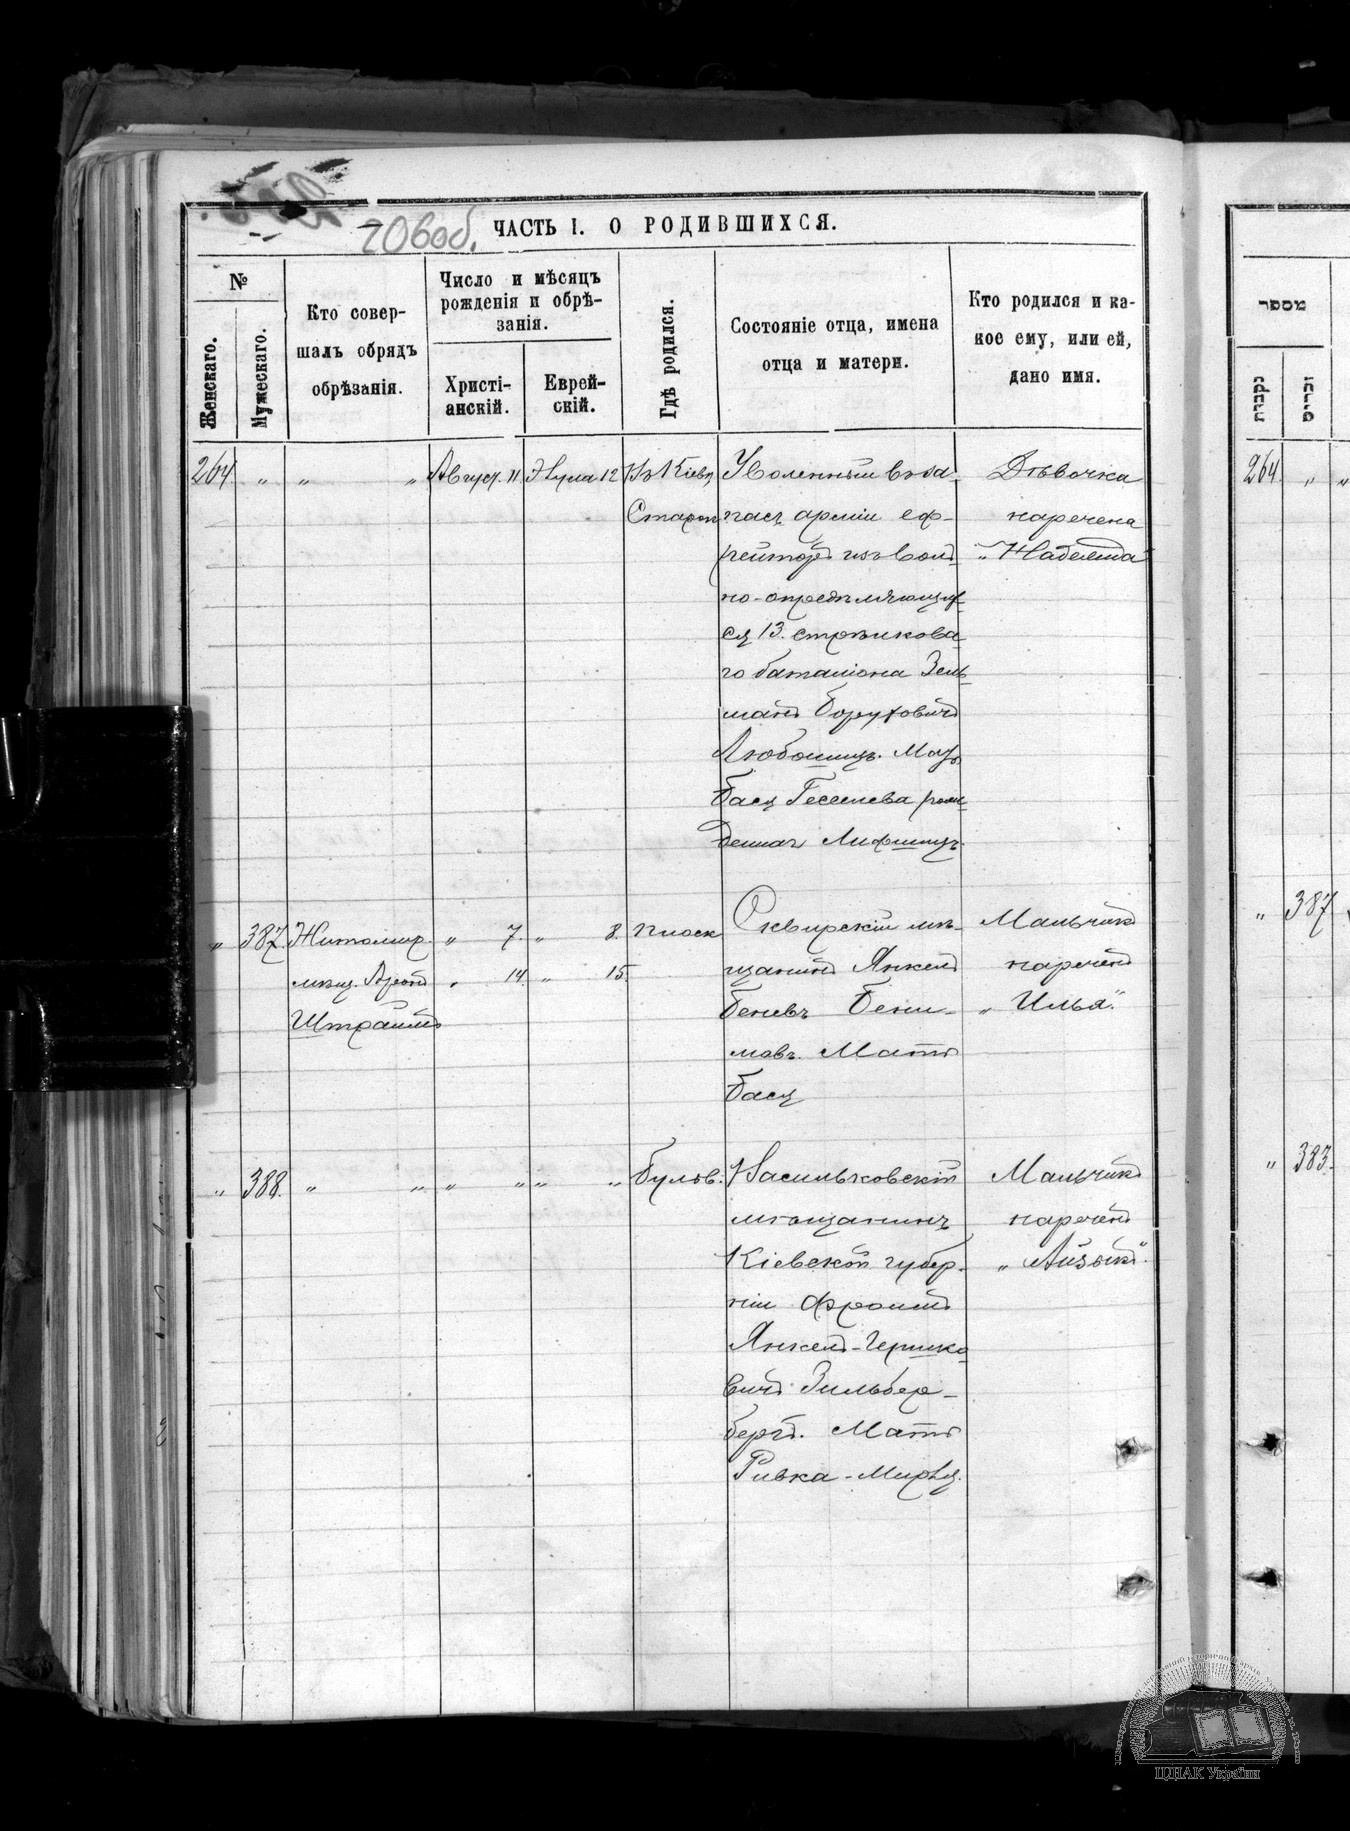 206об.
ЧАСТЬ I. О РОДИВШИХСЯ.
№
Женскаго.
Мужескаго.
Кто совер-
шалъ обрядъ
обрѣзанія.
Число и мѣсяцъ
рожденія и обрѣ-
занія.
Христі-
анскій.
Еврей-
скій.
Гдѣ родился.
Состояніе отца, имена
отца и матери.
Кто родился и ка-
кое ему, или ей,
дано имя.
264. „ „ „ Август. 11. 12 Въ Кіевѣ,
Уволенный въ за-
пасъ арміи еф-
рейторъ изъ воль
но-опредѣляющих
ся 13. стрѣлкова
го баталіона Зель
манъ Боруховичъ
Любошицъ. Мать
Бася Гесселева рож
денная Лифшицъ.
Дѣвочка
наречена
„Надежда"
„ 387. Житомир.
мѣщ. Аронъ
Штраимъ
„ 7. „ 8.
„ 14. „ 15.
Плоск
Сквирскій мѣ-
щанинъ Янкель
Мать
Бася
Мальчикъ
нареченъ
„Илья".
„ 388. „ „ „ „ „ „ Бульв.
Васильковскій
мѣщанинъ
Кіевской губер-
ніи Фроимъ
Янкель-Гершко
вичъ Зильбер-
бергъ. Мать
Ривка-Мирля.
Мальчикъ
нареченъ
„Айзикъ".
מספר
נקבות
זכרים
264. „ „
„ 387
„ 383.
ЦДІАК України